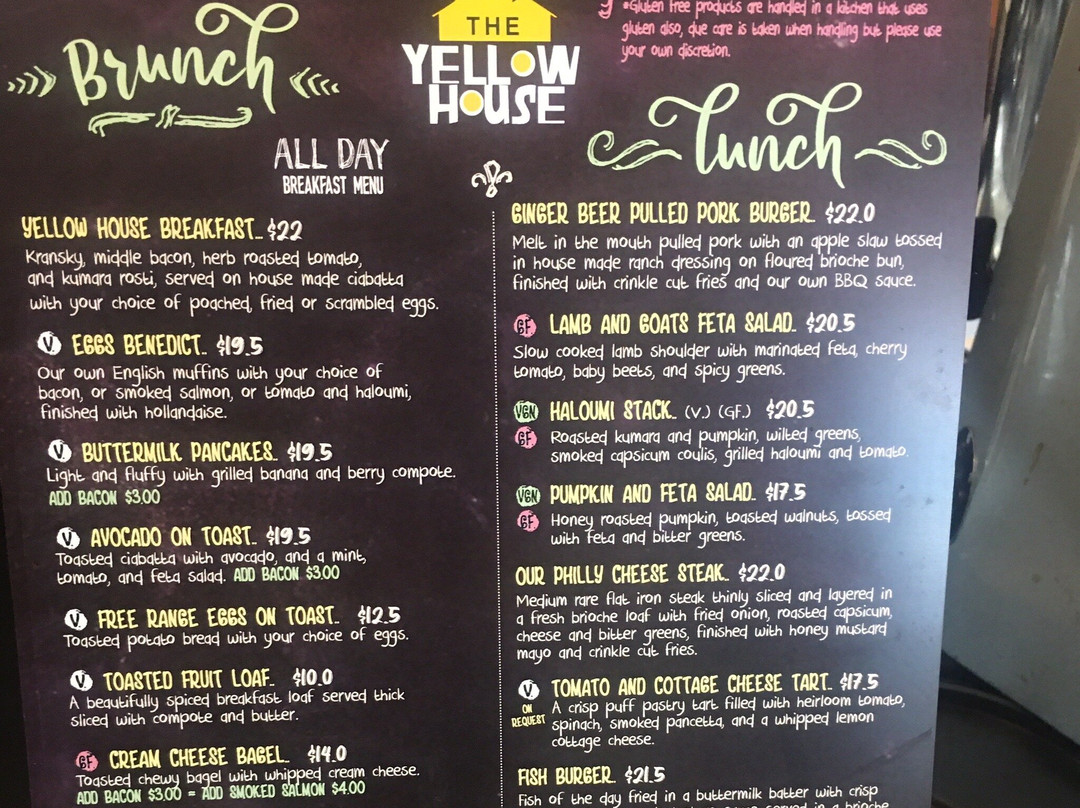 Brunch
THE
YELLOW
HOUSE
•Gluten free products are handled in a kitchen that uses
gluten also, due care is taken when handling but please use
your own discretion.
ALL DAY
BREAKFAST MENU
YELLOW HOUSE BREAKFAST.. $22
Kransky, middle bacon, herb roasted tomato,
and kumara rosti, served on house made ciabatta
with your choice of poached, fried or scrambled eggs.
V EGGS BENEDICT.. $19.5
Our own English muffins with your choice of
bacon, or smoked salmon, or tomato and haloumi,
finished with hollandaise.
V BUTTERMILK PANCAKES.. $19.5
Light and fluffy with grilled banana and berry compote.
ADD BACON $3.00
V AVOCADO ON TOAST.. $19.5
Toasted ciabatta with avocado, and a mint,
tomato, and feta salad. ADD BACON $3.00
V FREE RANGE EGGS ON TOAST.. $12.5
Toasted potato bread with your choice of eggs.
V TOASTED FRUIT LOAF.. $10.0
A beautifully spiced breakfast loaf served thick
sliced with compote and butter.
GF CREAM CHEESE BAGEL.. $14.0
Toasted chewy bagel with whipped cream cheese.
ADD BACON $3.00 = ADD SMOKED SALMON $4.00
lunch
GINGER BEER PULLED PORK BURGER.. $22.0
Melt in the mouth pulled pork with an apple slaw tossed
in house made ranch dressing on floured brioche bun,
finished with crinkle cut fries and our own BBQ sauce.
GF LAMB AND GOATS FETA SALAD.. $20.5
Slow cooked lamb shoulder with marinated feta, cherry
tomato, baby beets, and spicy greens.
VGN HALOUMI STACK.. (V.) (GF.) $20.5
GF Roasted kumara and pumpkin, wilted greens,
smoked capsicum coulis, grilled haloumi and tomato.
VGN PUMPKIN AND FETA SALAD.. $17.5
GF Honey roasted pumpkin, toasted walnuts, tossed
with feta and bitter greens.
OUR PHILLY CHEESE STEAK.. $22.0
Medium rare flat iron steak thinly sliced and layered in
a fresh brioche loaf with fried onion, roasted capsicum,
cheese and bitter greens, finished with honey mustard
mayo and crinkle cut fries.
V TOMATO AND COTTAGE CHEESE TART.. $17.5
ON REQUEST
A crisp puff pastry tart filled with heirloom tomato,
spinach, smoked pancetta, and a whipped lemon
cottage cheese.
FISH BURGER.. $21.5
Fish of the day fried in a buttermilk batter with crisp
served in a brioche